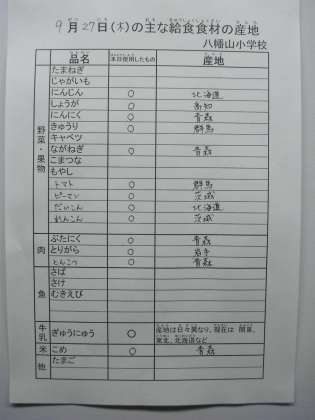 9月27日(木)の主な給食食材の産地
八幡山小学校
品名 本日使用したもの 産地
野菜・果物
たまねぎ
じゃがいも
にんじん ○ 北海道
しょうが ○ 高知
にんにく ○ 青森
きゅうり ○ 群馬
キャベツ
ながねぎ ○ 青森
こまつな
もやし
トマト ○ 群馬
ピーマン ○ 茨城
だいこん ○ 北海道
れんこん ○ 茨城
肉
ぶたにく ○ 青森
とりがら ○ 岩手
とんこつ ○ 青森
魚
さば
さけ
むきえび
牛乳 ぎゅうにゅう ○ 産地は日々異なり、現在は 関東、
東北、北海道など
米 こめ ○ 青森
他 たまご